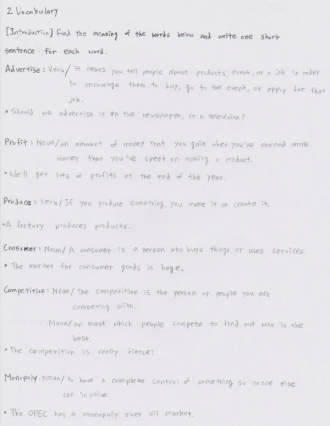 2 Vocabulary
[Introduction] Find the meaning of the words below and write one short
sentence for each word.
Advertise: Verb/ It means you tell people about products, event, or a job in order
to encourage them to buy, go to the event, or apply for that
job.
• Should we advertise it on the newspaper, or a television?
Profit: Noun/an amount of money that you gain when you've earned more
money than you've spent on making a product.
• We'll get lots of profits at the end of the year.
Produce: Verb/ If you produce something, you make it or create it.
• A factory produces products.
Consumer: Noun/ A consumer is a person who buys things or uses services.
• The market for consumer goods is huge.
Competition: Noun/ The competition is the person or people you are
competing with.
Noun/an event which people compete to find out who is the
best.
• The competition is really fierce!
Monopoly: Noun/ to have a complete control of something so no one else
can involve.
• The OPEC has a monopoly over oil market.